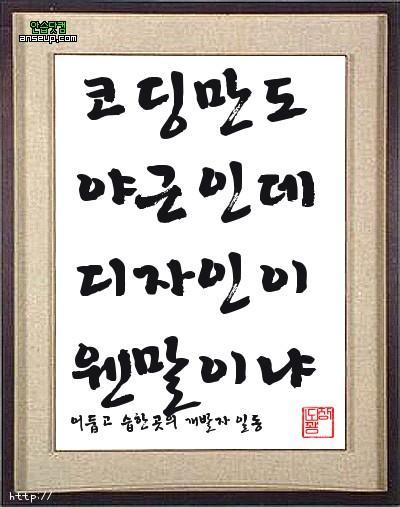 안습닷컴
anseup.com
코딩만도
야근인데
디자인이
웬말이냐
어둡고 습한곳의 개발자 일동
http://